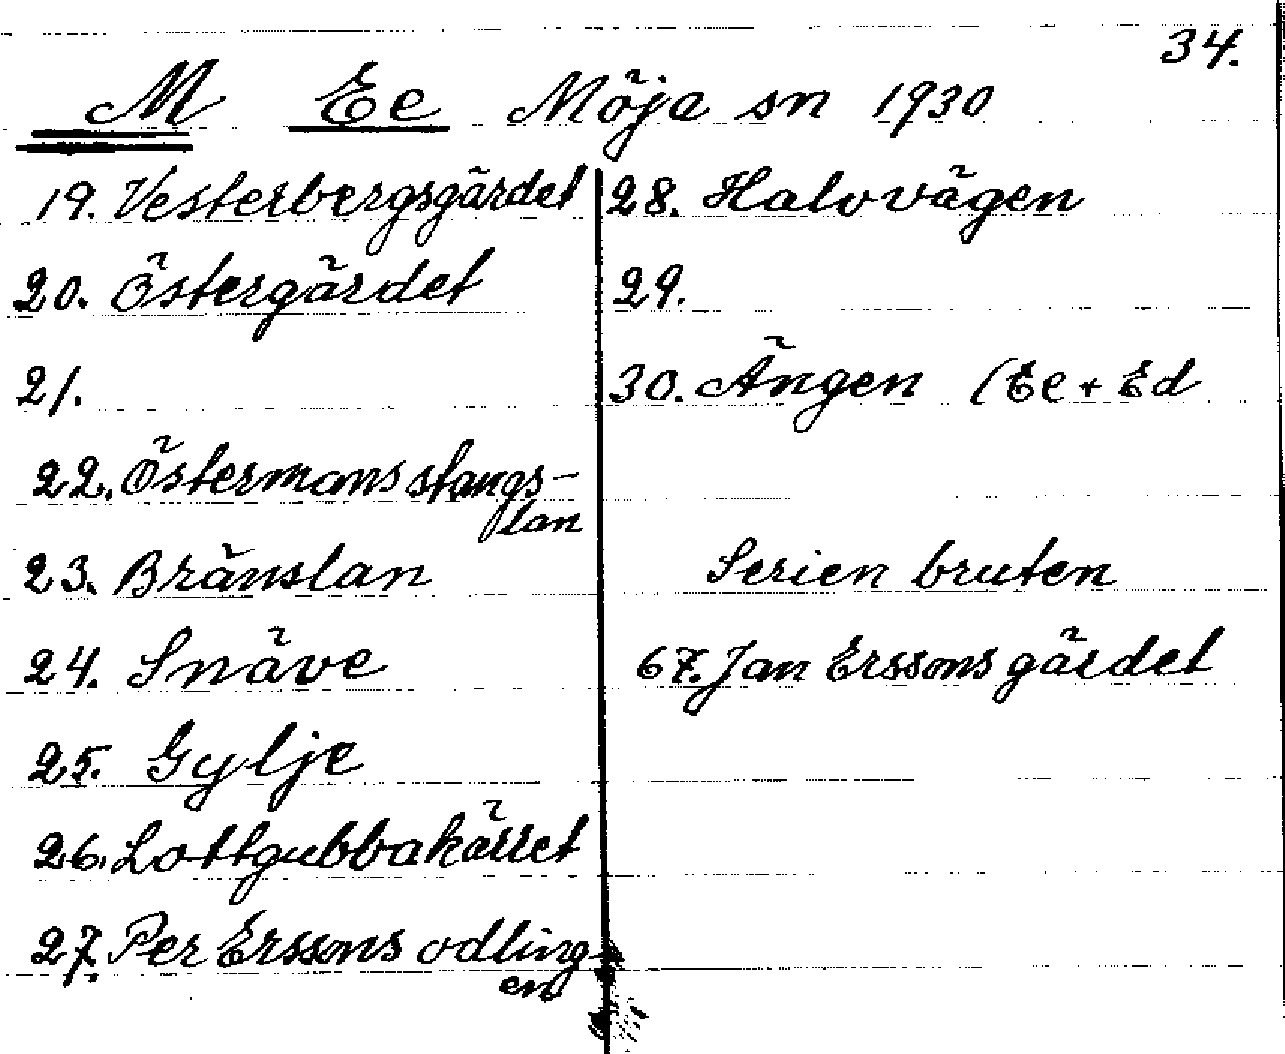 34.
M Ee Möja sn 1930
19. Vesterbergsgärdet
20. Östergärdet
21.
22. Östermansstangs-
lan
23. Bränslan
24. Snäve
25. Gylje
26. Lottgubbakärret
27. Per Erssons odling-
en
28. Halvvägen
29.
30. Ängen (Ee + Ed
Serien bruten
67. Jan Erssons gärdet